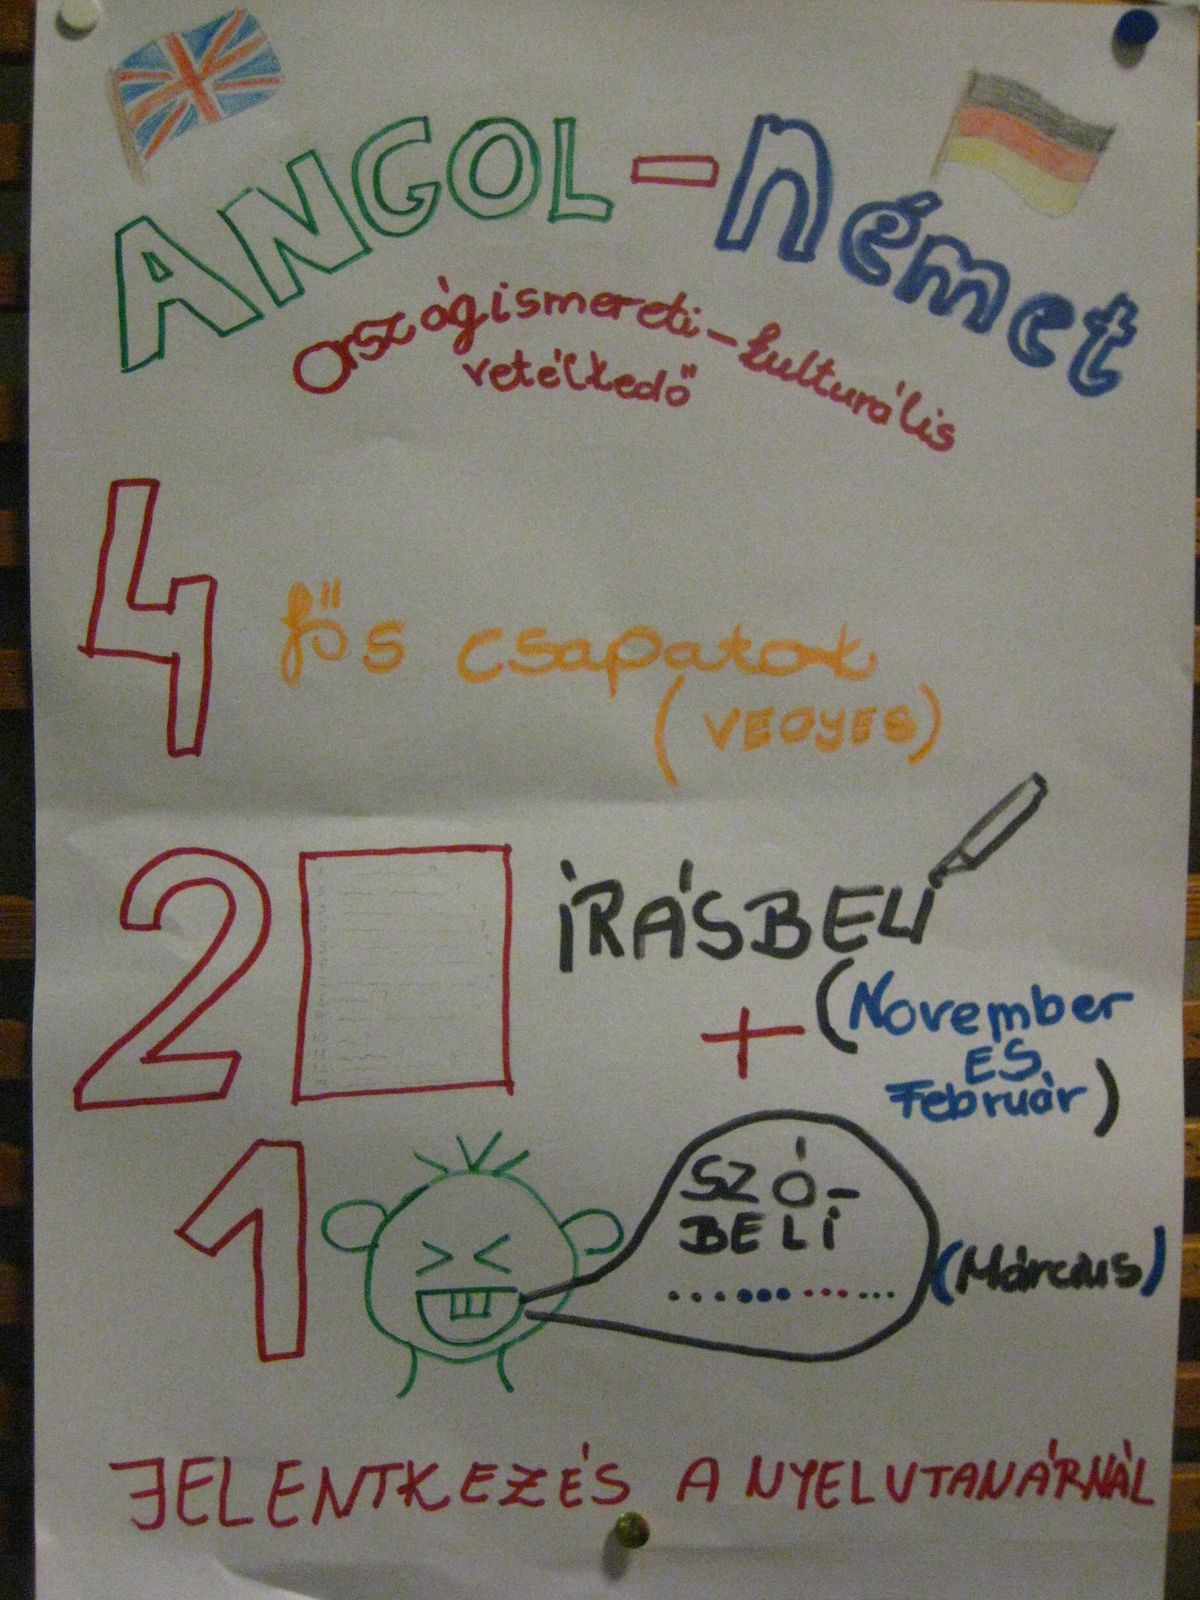 ANGOL - Német
Országismereti - kulturális
vetélkedő
4 fős csapatok
(VEGYES)
2 ÍRÁSBELI
+ (November
ES
Február)
1 SZÓ-
BELI
(Március)
JELENTKEZÉS A NYELVTANÁRNÁL